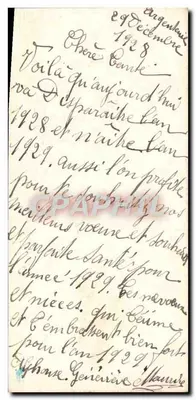 Argenteuil
29 Décembre
1928
Chère Tante
Voilà qu'aujourd'hui
va Disparaître l'an
1928 et n'aître l'an
1929. aussi l'on profite
pour te souhaiter
meilleurs voeux et souhaits
et parfaite santé pour
l'année 1929. Tes neveux
et nieces. qui t'aime
et t'embrassent bien fort
pour l'an 1929
Geneviève Maurice